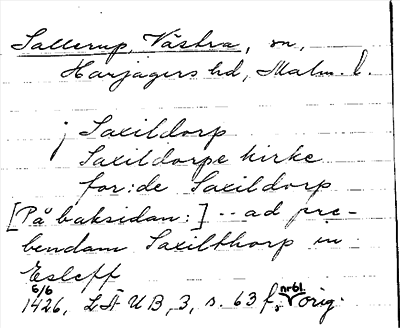 Sallerup, Västra, sn,
Harjagers hd, Malm. l.
i Saxildorp
Saxildorpe kirke
for:de Saxildorp
[På baksidan:] -- ad pre-
bendam Saxilthorp in
Esleff
6/6
1426, LÄUB, 3, s. 63 f, nr 61. orig.